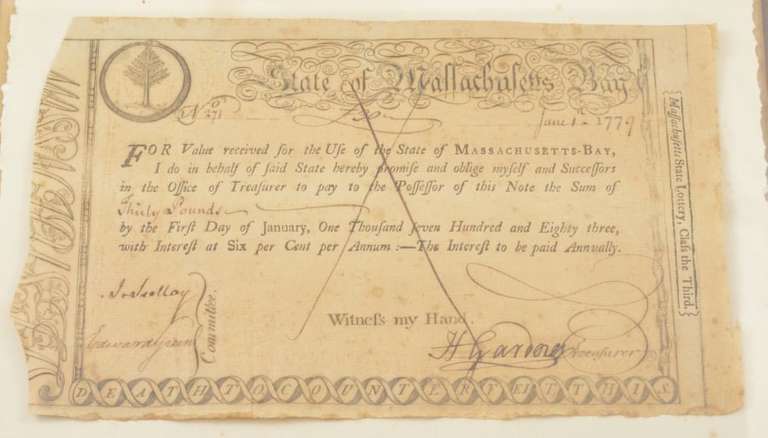 State of Massachusetts Bay
No 271
June 1st 1779
FOR Value received for the Use of the State of MASSACHUSETTS-BAY,
I do in behalf of ſaid State hereby promiſe and oblige myſelf and Succeſſors
in the Office of Treaſurer to pay to the Poſſeſſor of this Note the Sum of
Thirty Pounds
by the Firſt Day of January, One Thouſand Seven Hundred and Eighty three,
with Intereſt at Six per Cent per Annum :—The Intereſt to be paid Annually.
Committee.
Witneſs my Hand.
H Gardner Treaſurer
DEATH TO COUNTERFEIT THIS
Maſſachuſetts State Lottery, Claſs the Third.